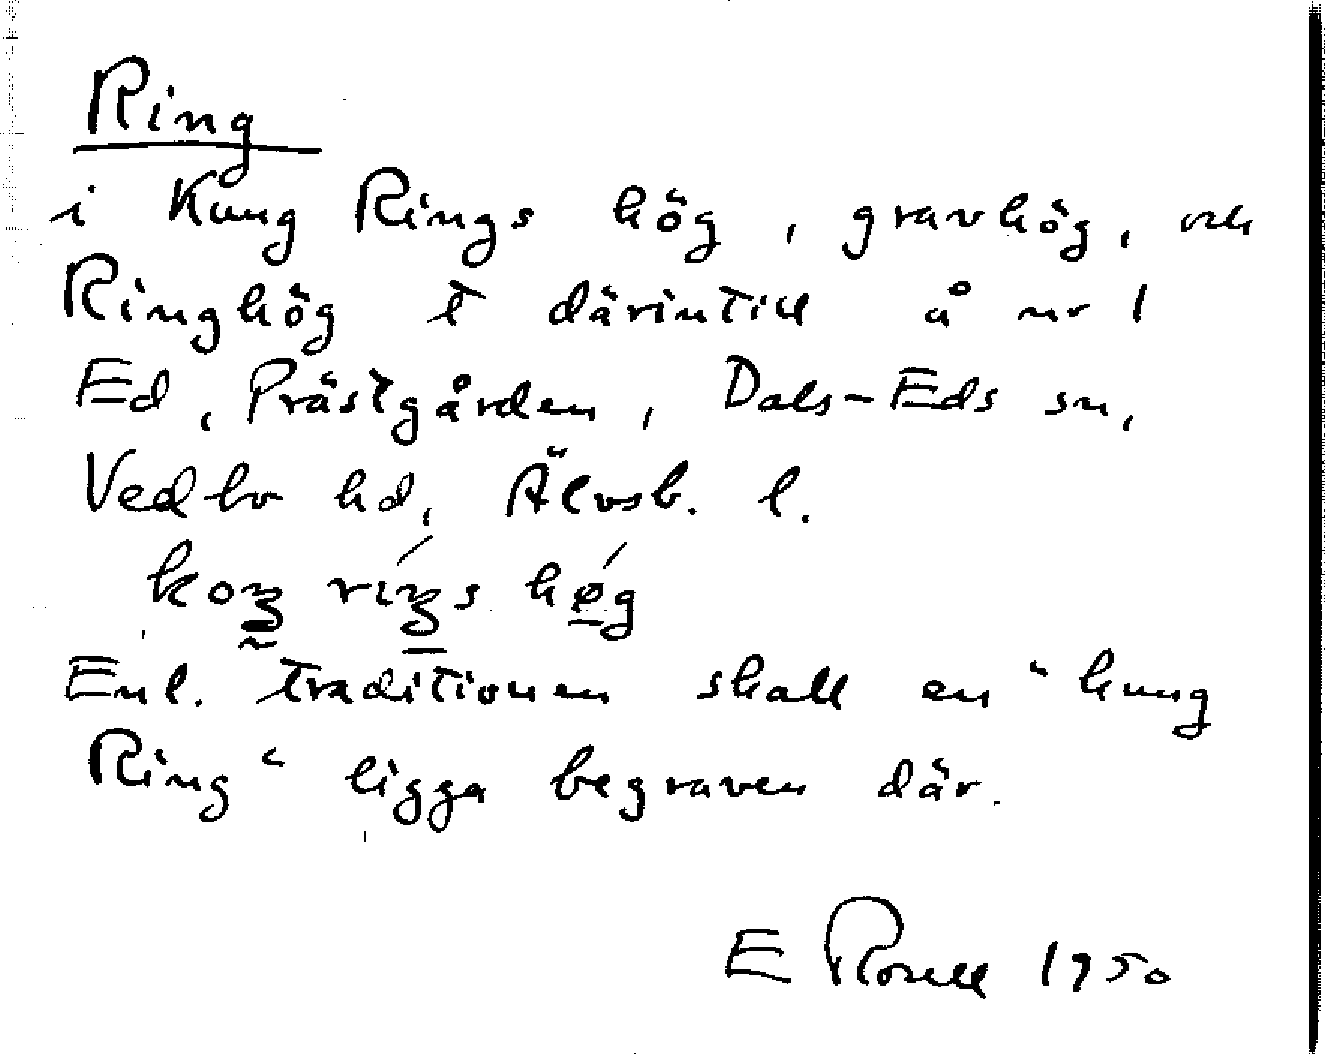 Ring
i Kung Rings hög, gravhög, och
Ringhög t därintill å nr 1
Ed, Prästgården, Dals-Eds sn,
Vedbo hd, Älvsb. l.
Enl. traditionen skall en "kung
Ring" ligga begraven där.
E Rosell 1950